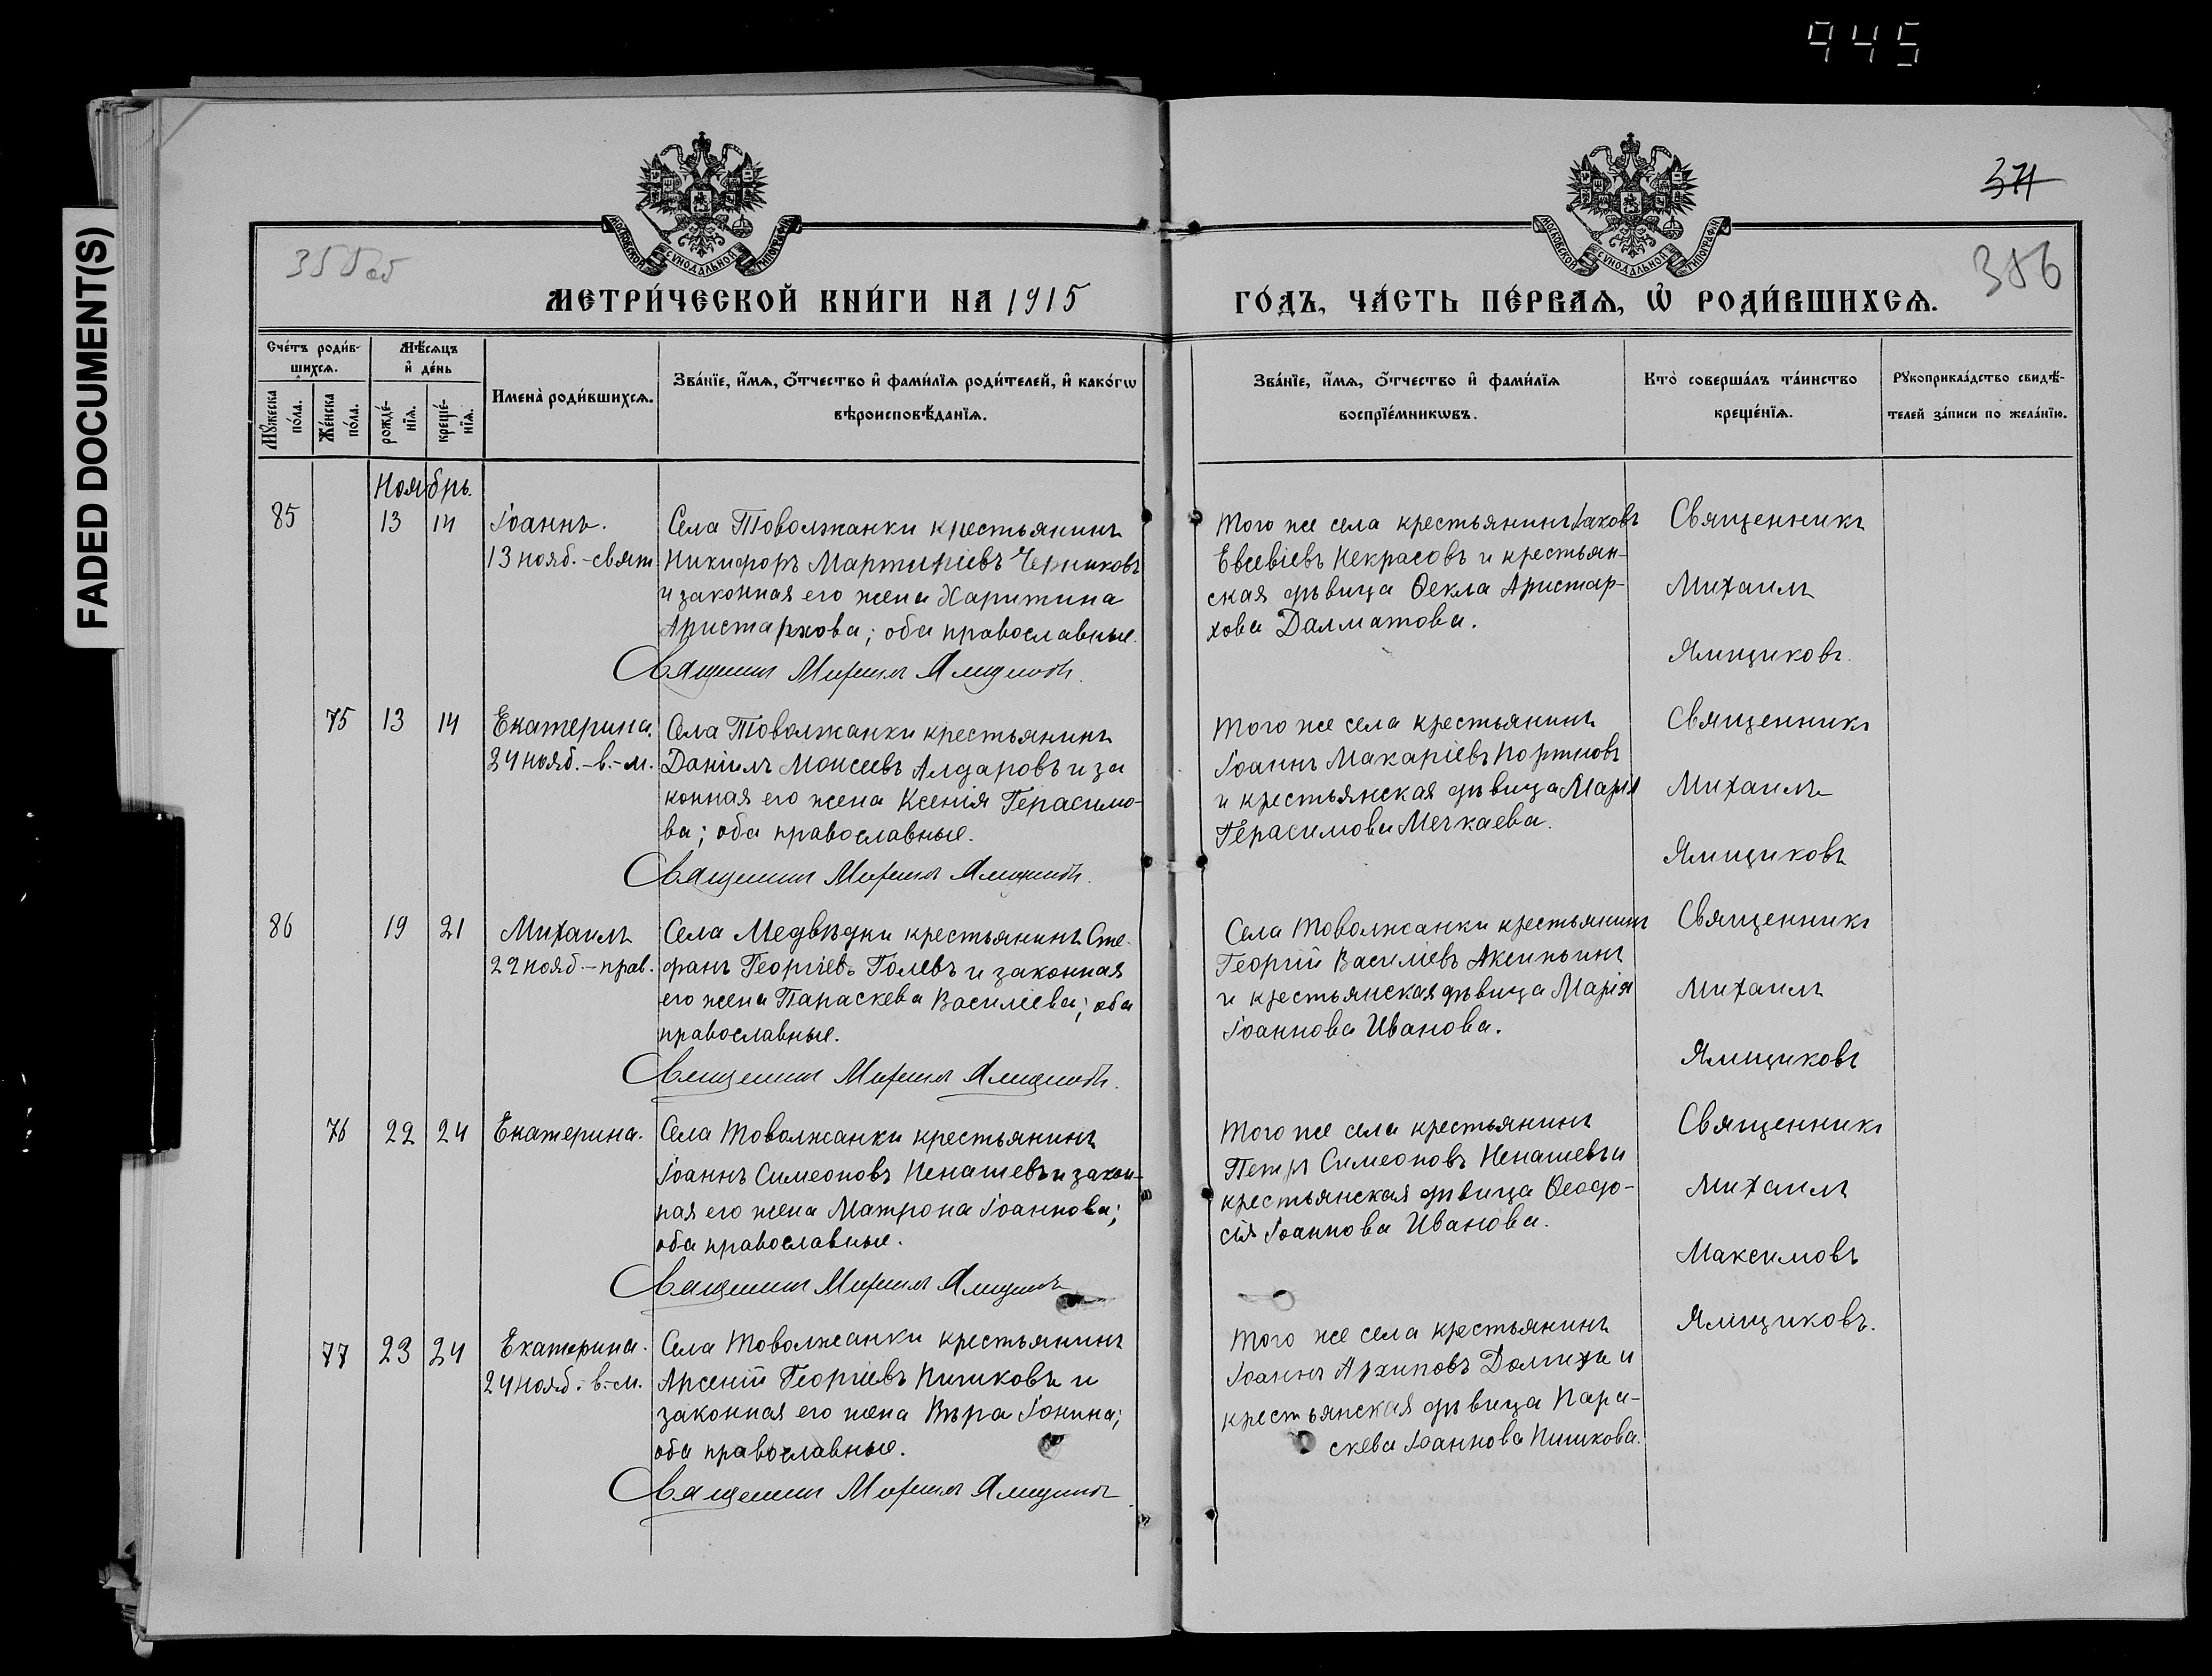 945
FADED DOCUMENT(S)
374
355об
356
МОСКОВСКОЙ СѴНОДАЛЬНОЙ ТИПОГРАФІИ
МОСКОВСКОЙ СѴНОДАЛЬНОЙ ТИПОГРАФІИ
МЕТРИ́ЧЕСКОЙ КНИ́ГИ НА 1915
ГО́ДЪ, ЧА́СТЬ ПЕ́РВАѦ, Ѡ҆ РОДИ́ВШИХСѦ.
Счє́тъ роди́в-
шихсѧ.
Мꙋ́жеска по́ла.
Же́нска по́ла.
Мѣ́сѧцъ
и҆ де́нь
рожде́-
нїѧ.
креще́-
нїѧ.
Имена̀ роди́вшихсѧ.
Зва́нїе, и҆́мѧ, ѻ҆́тчество и҆ фами́лїѧ роди́телей, и҆ како́гѡ
вѣроисповѣ́данїѧ.
Зва́нїе, и҆́мѧ, ѻ҆́тчество и҆ фами́лїѧ
воспрїе́мникѡвъ.
Кто̀ соверша́лъ та́инство
креще́нїѧ.
Рꙋкоприкла́дство свидѣ́-
телей за́писи по жела́нїю.
Ноябрь.
85 13 14 Іоаннъ.
13 нояб.-свят
Села Товолжанки крестьянинъ
Никифоръ Мартиріевъ Черниковъ
и законная его жена Харитина
Аристархова; оба православные.
Священникъ Михаилъ Ямщиковъ.
Того же села крестьянинъ Іаковъ
Евсевіевъ Некрасовъ и крестьян-
ская дѣвица Ѳекла Аристар-
хова Далматова.
Священникъ
Михаилъ
Ямщиковъ.
75 13 14 Екатерина.
24 нояб.-в.-м.
Села Товолжанки крестьянинъ
Даніилъ Моисеевъ Алдаровъ и за
конная его жена Ксенія Герасимо-
ва; оба православные.
Священникъ Михаилъ Ямщиковъ.
Того же села крестьянинъ
Іоаннъ Макаріевъ Портновъ
и крестьянская дѣвица Марія
Герасимова Мечкаева.
Священникъ
Михаилъ
Ямщиковъ
86 19 21 Михаилъ
22 нояб-прав.
Села Медвѣдки крестьянинъ Сте-
фанъ Георгіевъ Голевъ и законная
его жена Параскева Василіева; оба
православные.
Священникъ Михаилъ Ямщиковъ.
Села Товолжанки крестьянинъ
Георгій Василіевъ Аксиньинъ
и крестьянская дѣвица Марія
Іоаннова Иванова.
Священникъ
Михаилъ
Ямщиковъ
76 22 24 Екатерина.
Села Товолжанки крестьянинъ
Іоаннъ Симеоновъ Ненашевъ и закон-
ная его жена Матрона Іоаннова;
оба православные.
Священникъ Михаилъ Ямщиковъ
Того же села крестьянинъ
Петръ Симеоновъ Ненашевъ и
крестьянская дѣвица Ѳеодо-
сія Іоаннова Иванова.
Священникъ
Михаилъ
Максимовъ
Ямщиковъ.
77 23 24 Екатерина.
24 нояб.-в.-м.
Села Товолжанки крестьянинъ
Арсеній Георгіевъ Пишковъ и
законная его жена Вѣра Іонина;
оба православные.
Священникъ Михаилъ Ямщиковъ
Того же села крестьянинъ
Іоаннъ Архиповъ и
крестьянская дѣвица Пара-
скева Іоаннова Пишкова.